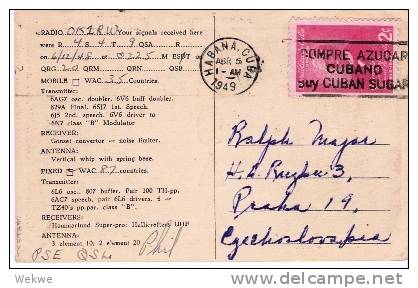 RADIO OK1RW Your signals received here
were R 4 S 4 T 9 QSA R
on 6/12/48 at 0225 M ESRT on
QRG 28 QRM QRN QSB
MOBILE WAC 35 Countries.
Transmitter:
6AG7 osc. doubler. 6V6 buff doubler.
829A Final. 6SJ7 1st. Speech.
6J5 2nd. speech. 6V6 driver to
6N7 class "B" Modulator
RECEIVER:
Gonset converter — noise limiter.
ANTENNA:
Vertical whip with spring base.
FIXED WAC 87 countries.
Transmitter:
6L6 osc. 807 buffer. Pair 100 TH-pp.
6AC7 speech, pair 6L6 drivers. 4 —
TZ40's pp.par. class "B".
RECEIVERS:
Hammarlund Super-pro: Hallicrafters
ANTENNA:
3 element 10; 2 element 20
PSE QSL Phil
HABANA, CUBA
ABR 5
1-AM
1949
2c
COMPRE AZUCAR
CUBANO
Buy CUBAN SUGAR
Ralph Major
Praha 19,
Czechoslovakia
© Wekwe
delcampe.net